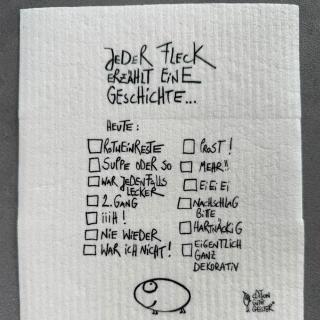 JEDER FLECK
ERZÄHLT EINE
GESCHICHTE...
HEUTE:
ROTWEINRESTE
SUPPE ODER SO
WAR JEDENFALLS
LECKER
2. GANG
iiiH!
NIE WIEDER
WAR ICH NICHT!
PROST!
MEHR!!
EiEiEi
NACHSCHLAG
BITTE
HARTNÄCKIG
EIGENTLICH
GANZ
DEKORATIV
EDITION
GUTE
GEISTER